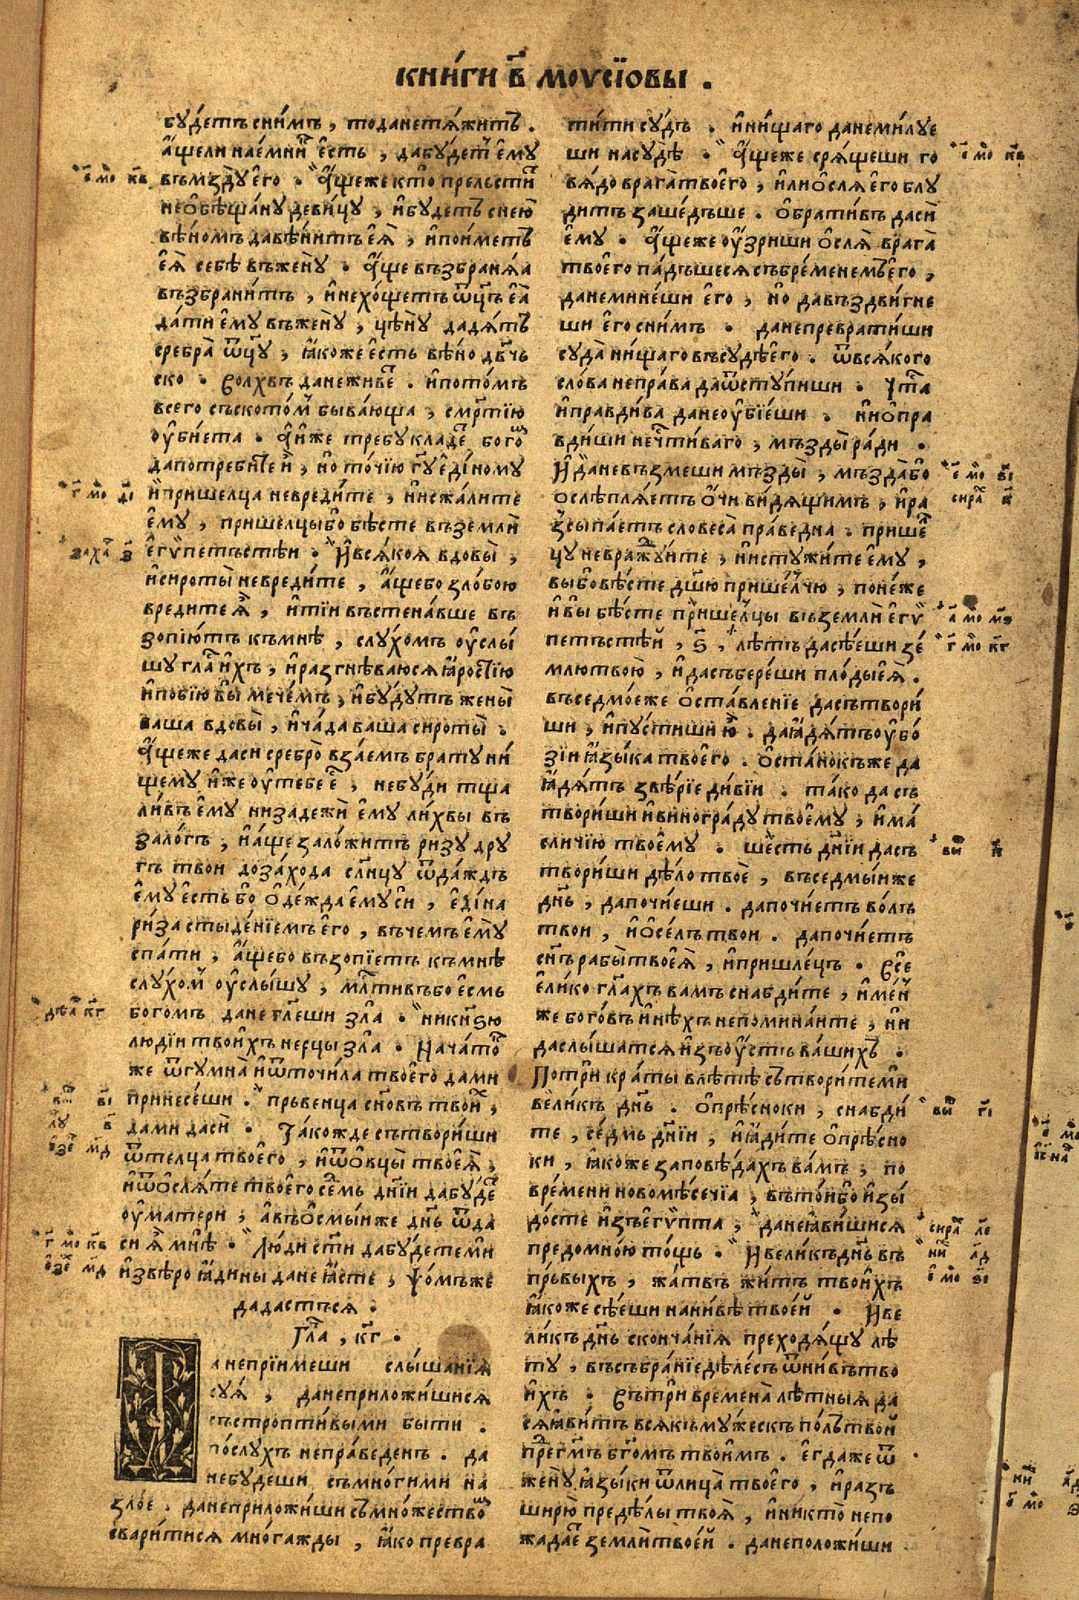 кни́ги в҃ моѵсїѡвы .
бу́детъ сни́мъ , тоданетѧ́житъ .
а҆́щели нае́мнїⷦ҇ е҆́сть , дабу́деⷮ е҆му̀
въмздѹ̀ е҆го̀ . А҆́щеже кто̀ прельстиⷮ
неѡ҆бѣща́ну деви́цу , и҆бу́детъ снею̀
вѣ́номъ давѣ́нитъ е҆ѧ̀ , и҆пои́метъ
е҆ѧ̀ себѣ̀ въжену̀ . А҆́ще възбранѧ́ѧ
възбрани́тъ , и҆нехо́щетъ ѿц҃ъ е҆ѧ̀
да́ти е҆му̀ въжену̀ , цѣ́ну дадѧ́тъ
сребра̀ ѿц҃у , ꙗ҆́коже е҆́сть вѣ́но дв҃чь
ско . Волхвъ данежиⷡ҇е . и҆пото́мъ
всего съското́мⷨ быва́юща , сме́ртїю
ѹ҆бїе́та . А҆́иже требу кладеⷮ бого́ⷨ
дапотреби́тсѧ , но то́чїю гⷭ҇у е҆ди́ному
и҆ пришелца невреди́те , и҆несжа́лите
е҆му̀ , пришелцыбо бѣ́сте въземлѝ
е҆гѵ́петъстѣи . И҆всѧ́коѧ вдовы̀ ,
и҆сироты̀ невреди́те , а҆́щебо ѕло́бою
вредите ѧ҆̀ , и҆тїи въстена́вше въ
зопїю́тъ къмнѣ̀ , слу́хомъ ѹ҆слы́
шу гла́съ и҆́хъ , и҆разгнѣ́ваюсѧ ꙗ҆́ростїю
и҆побїю́ вы мече́мъ , и҆бу́дутъ жены̀
ваша вдовы̀ , и҆ча́да ваша сироты̀ .
А҆́щеже даси сребро̀ вза́емъ брату ни́
щему и҆́же ѹ҆тебе е҆́ⷭ , небу́ди тща
ли́въ е҆му̀ низадежѝ е҆му̀ ли́хвы въ
зало́гъ , и҆а҆́ще зало́житъ ри́зу дру
гъ твои доза́хода сл҃нцу ѿда́ждь
е҆му̀ е҆́сть бо ѻ҆де́жда е҆му̀ сѝ , е҆ди́на
ри́за стыде́нїемъ е҆го̀ , въче́мъ е҆му̀
спа́ти , а҆́щебо възопїе́тъ къмнѣ̀
слу́хоⷨ ѹ҆слы́шу , млⷭ҇тивъбо е҆смь
богомъ дане гл҃еши зла̀ . никнѧ́зю
люді́и твои́хъ нерцы́ зла̀ . Нача́тоⷦ
же ѿгумна̀ и҆ѿточи́ла твоего̀ дами
принесе́ши . прьвенца сн҃о́въ твоиⷯ ,
дами дасѝ . Та́кожде сътвори́ши
ѿтелца̀ твоего̀ , и҆ѿѻвцы̀ твоеѧ̀ ,
и҆ѿѻслѧ́те твоего̀ се́дмь дн҃їи дабу́деⷮ
ѹ҆ма́тери , а҆въѻсмы́иже дн҃ь ѿда
си ѧ҆̀ мнѣ̀ . Лю́ди ст҃и дабу́детеми
и҆звѣро ꙗ҆ди́ны дане ꙗ҆сте , ѱо́мъже
дадастъсѧ .
Гла́ , кг҃ .
анепрїи́меши слы́шанїѧ
су́ѧ , данеприложи́шисѧ
състропти́выми бы́ти .
по́слухъ непра́веденъ . да
небудеши съмно́гими на
зло́е . данеприложи́ши съмно́жествоⷨ
сварити́сѧ мно́гажды , ꙗ҆́ко превра
ти́ти су́дъ . и҆ни́щаго данеми́луе
ши насудѣ̀ . А҆́щеже срѧ́щеши го
вѧ́до врага̀твоего̀ , и҆лиѻ҆слѧ̀ е҆го блу
дитъ заше́дъше . ѻ҆брати́въ дасѝ
е҆му̀ . А҆́щеже ѹ҆́зриши ѻ҆слѧ̀ врага̀
твоего̀ па́дъшесѧ събре́менемъ е҆го̀ ,
данемине́ши е҆го , но давъздви́гне
ши е҆го сни́мъ . данепреврати́ши
суда̀ ни́щаго въсудѣ̀ е҆го . ѿвсѧ́кого
сло́ва непра́ва даѿступи́ши . Чⷭ҇та
и҆пра́вдива данеѹ҆бїе́ши . и҆ниѻ҆пра
вди́ши нечⷭ҇ти́ваго , мъзды̀ ра́ди .
И҆ даневъзмеши мъзды̀ , мъздабо
ѻ҆слѣплѧ́етъ ѻ҆чи ви́дѧщимъ , и҆ра
зсыпа́етъ словеса̀ пра́ведна . прише́ⷧ
цу невражду́ите , и҆нисту́жите е҆му̀ ,
выбовѣ́сте дш҃ю прише́лчю , поне́же
и҆вы бѣ́сте прише́лцы въземлѝ е҆гѵ́
петъстѣ́й , ѕ҃ , лѣ́тъ дасѣ́еши зе́
млютвою̀ , и҆дасъбере́ши плоды̀ е҆ѧ̀ .
въседмо́еже ѻ҆ста́вленїе дасътвори́
ши , и҆пусти́ши ю҆̀ . даꙗ҆дѧ́тъ ѹ҆бо́
зїи ꙗ҆зы́ка твоего̀ . ѻ҆ста́нокъже да
ꙗ҆дѧ́тъ ѕвѣ́рїе ди́вїи . та́ко да съ
твориши и҆виногра́ду твоему̀ , и҆ма́
сличїю твоему̀ . ше́сть дн҃їи дасъ
твори́ши дѣ́ло твоѐ , въседмы́иже
дн҃ь , дапочїе́ши . дапочїе́тъ во́лъ
твои , и҆ѻ҆се́лъ твои . дапочїе́тъ
сн҃ъ рабы̀ твоеѧ̀ , и҆пришле́цъ . Всѐ
е҆ли́ко гл҃ахъ вамъ снабди́те , и҆ме́н
же бого́въ и҆нѣхъ непомина́ите , ни
даслы́шатсѧ и҆зъ ѹ҆́стъ ва́шихъ .
По трѝ кра́ты влѣ́тѣ сътвори́теми
вели́къ дн҃ь . ѻ҆прѣсноки , снабди́
те , се́дмь дн҃їи , и҆ꙗ҆ди́те ѻ҆прѣ́сно
ки , ꙗ҆́коже заповѣ́дахъ ва́мъ , по
вре́мени новомѣ́сечїа , въто́ибо и҆зы́
досте и҆зъ е҆гѵ́пта , данеꙗ҆ви́шисѧ
предомно́ю то́щь . И҆вели́къдн҃ь въ
пръвыхъ , жатвъ жи́тъ твои́хъ
ꙗ҆́коже сѣ́еши нани́вѣ твое́й . И҆ве
ли́къ дн҃ь сконча́нїѧ преходѧ́щу лѣ
ту , въсъбра́нїе дѣ́лесъ ѿни́въ тво
и҆́хъ . Въ трѝ времена̀ лѣ́тныѧ да
сѧꙗ҆ви́тъ всѧ́къ му́жескъ по́лъ твой
преⷣ гм҃ъ бг҃омъ твои́мъ . е҆гдаже ѿ
жену̀ ꙗ҆зы́ки ѿлица̀ твоего̀ , и҆разъ
ширю̀ предѣ́лы твоѧ̀ , и҆никто̀ непо
жада́еⷮ землѝ твое́й . данеположи́ши